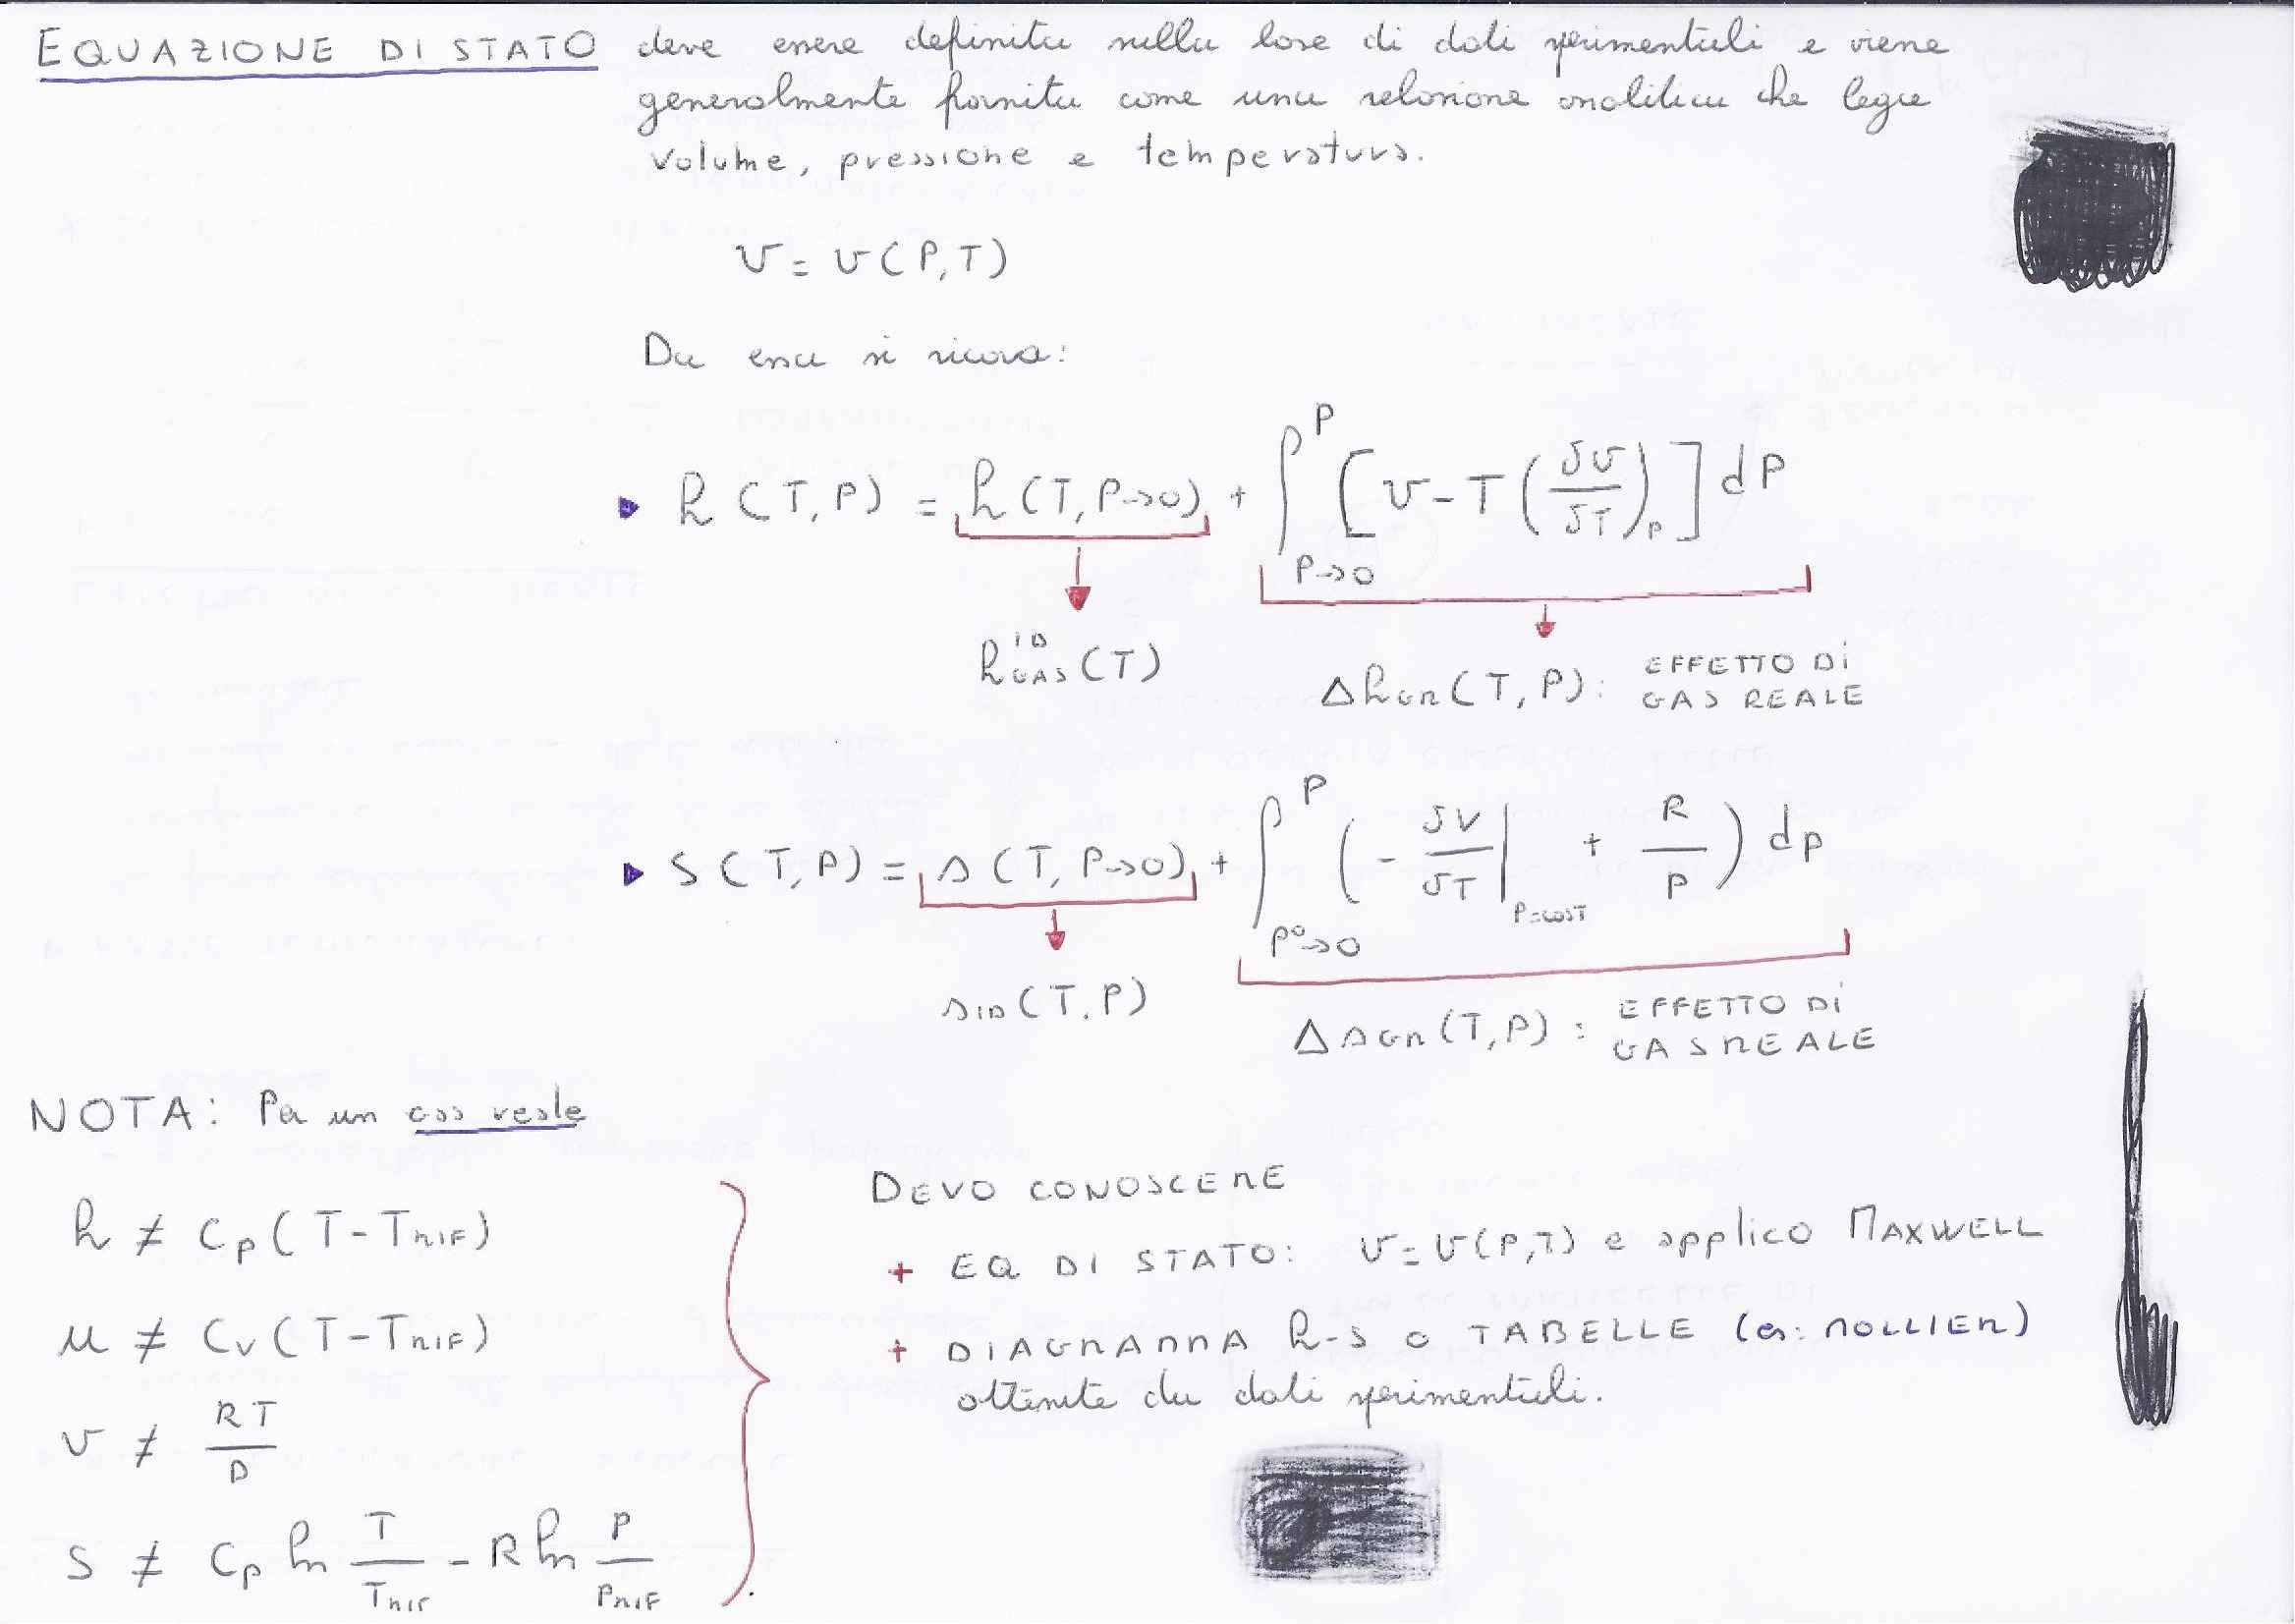 EQUAZIONE DI STATO deve essere definita sulla base di dati sperimentali e viene
generalmente fornita come una relazione analitica che lega
volume, pressione e temperatura.
v = v(P,T)
Da essa si ricava:
▶ h (T,P) = h(T,P→0) + ∫_{P→0}^{P} [v - T (δv/δT)_P] dP
h^{ID}_{GAS}(T)
Δh_{GR}(T,P): EFFETTO DI GAS REALE
▶ S(T,P) = s(T,P→0) + ∫_{P°→0}^{P} (- δV/δT |_{P=COST} + R/P) dp
s_{ID}(T,P)
Δs_{GR}(T,P): EFFETTO DI GAS REALE
NOTA: Per un gas reale
h ≠ Cp(T-T_{RIF})
u ≠ Cv(T-T_{RIF})
v ≠ RT/P
S ≠ Cp ln T/T_{RIF} - R ln P/P_{RIF}
DEVO CONOSCERE
+ EQ DI STATO: v=v(P,T) e applico MAXWELL
+ DIAGRAMMA h-s o TABELLE (es: MOLLIER)
ottenute da dati sperimentali.